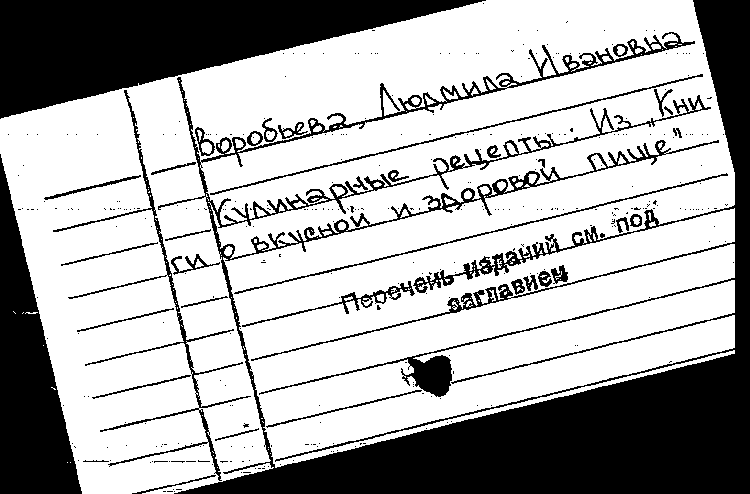 Воробьева, Людмила Ивановна
Кулинарные рецепты: Из „Кни-
ги о вкусной и здоровой пище"
Перечень изданий см. под
заглавием